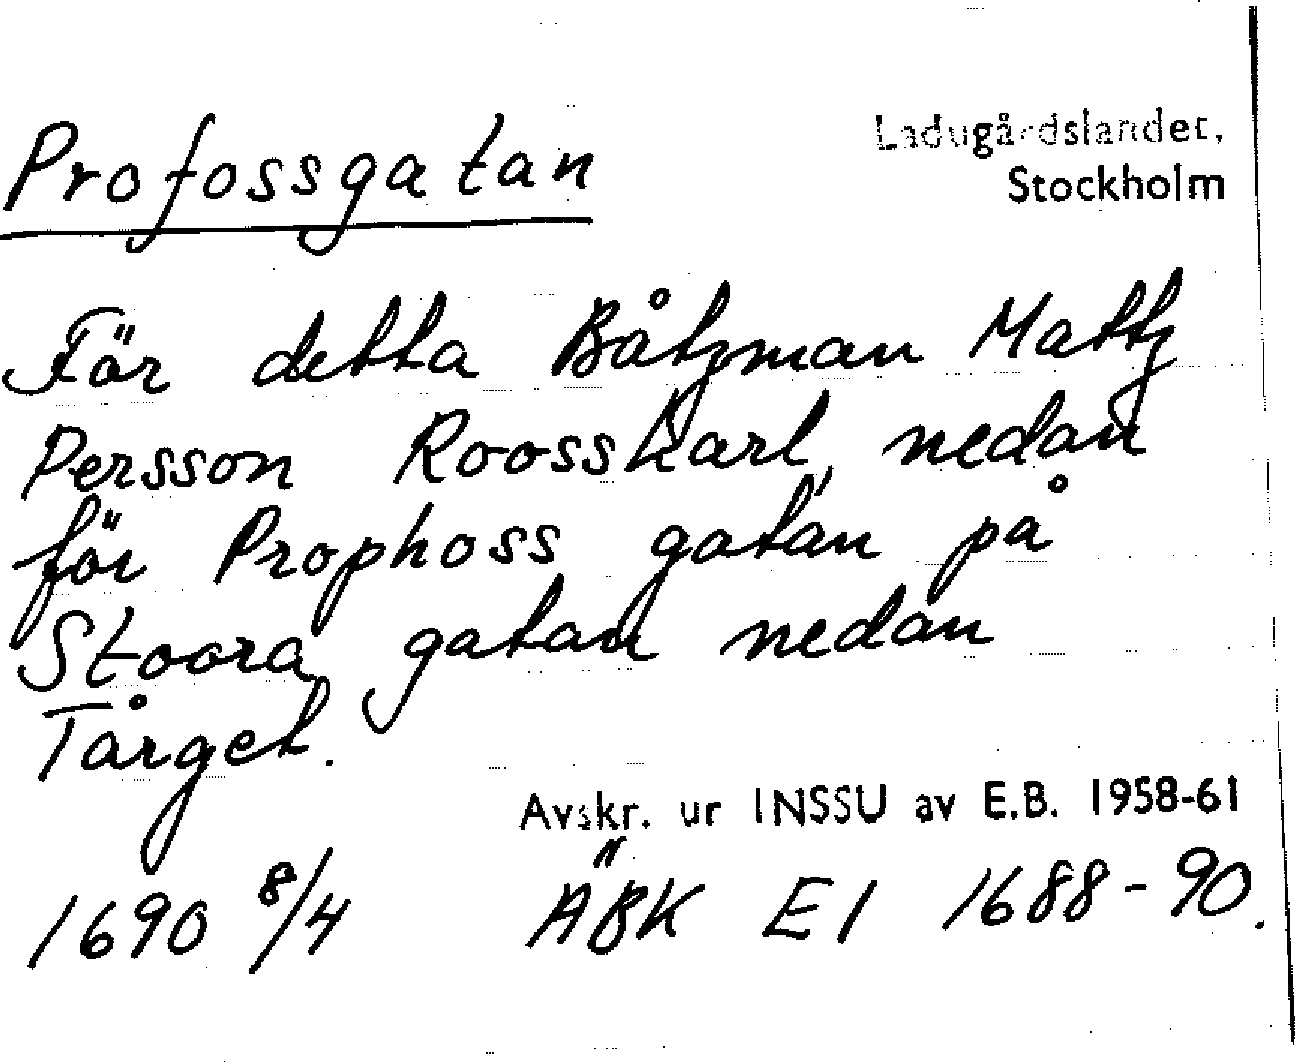 Profossgatan
Ladugårdslandet,
Stockholm
För detta Båtzman Mattz
Persson Roosskarl, nedan
för Prophoss gatan på
Stoora gatan nedan
Tårget.
Avskr. ur INSSU av E.B. 1958-61
1690 8/4 ÄBK E1 1688-90.